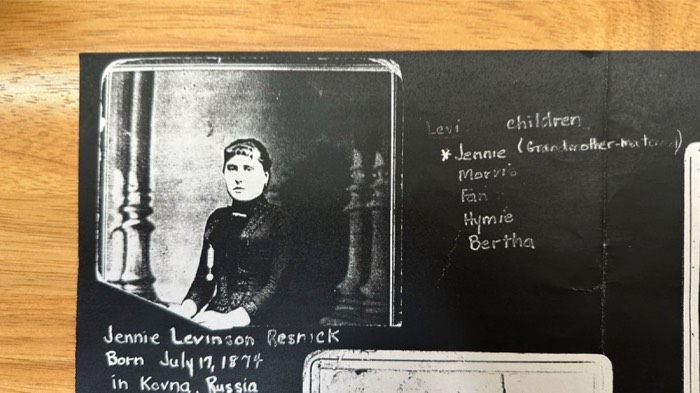 Levi children
* Jennie (Grandmother-maternal)
Morris
Fan
Hymie
Bertha
Jennie Levinson Resnick
Born July 17, 1874
in Kovna, Russia